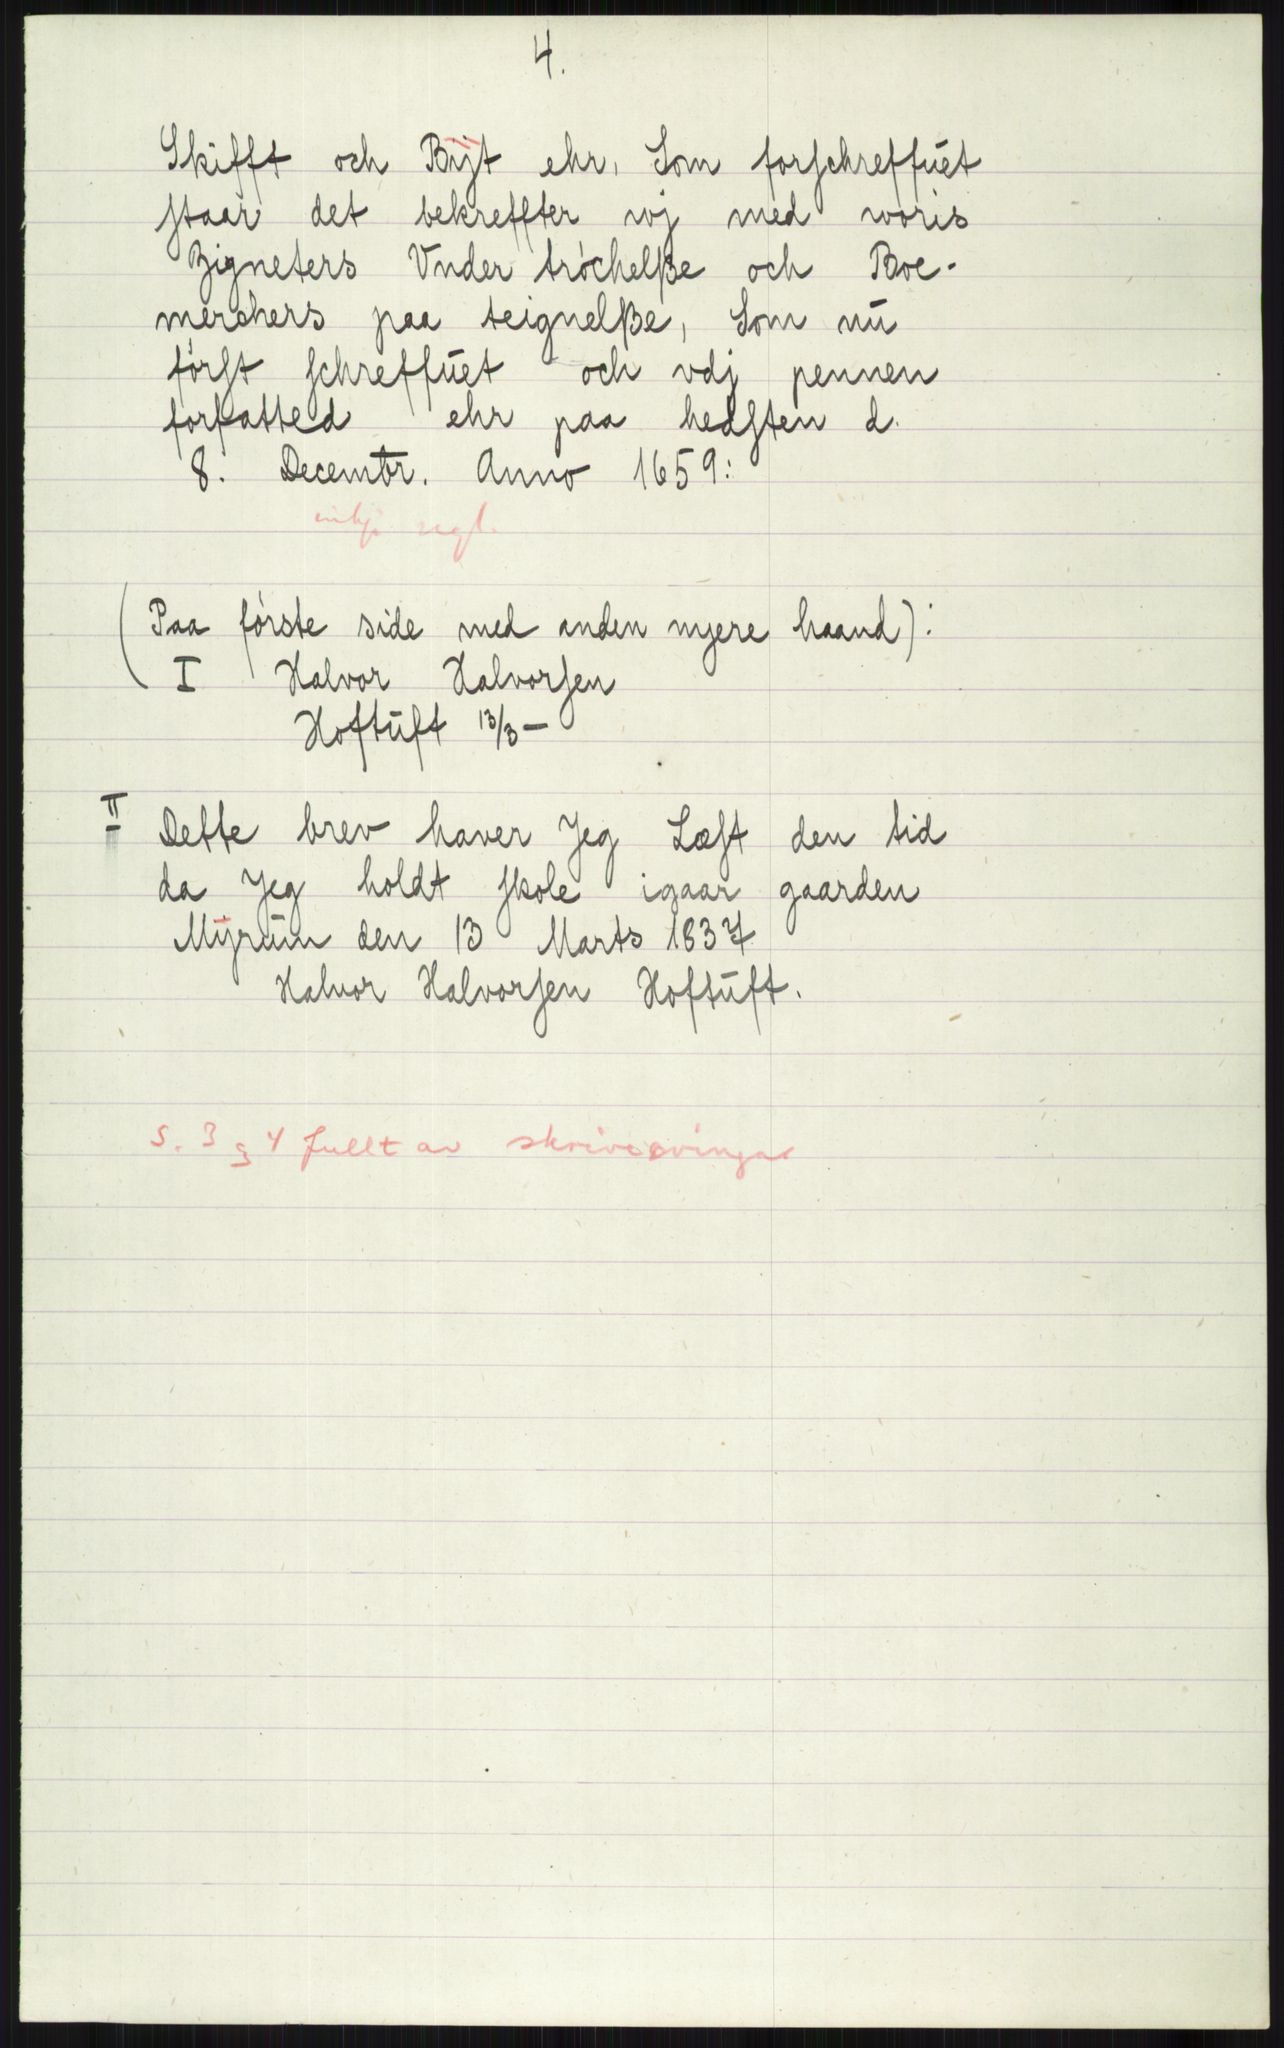 4.
Skifft och Bÿt ehr, Som forschreffuet
staar det bekreffter wj med woris
Zigneters Vnder tröchelße och Boe-
merchers paa teignelße, Som nu
först schreffuet och vdj pennen
forfatted ehr paa hedsten d.
8. Decembr. Anno 1659:
(Paa förste side med anden nyere haand):
I Halvor Halvorsen
Hoftuft 13/3 —
II Dette brev haver Jeg Læst den tid
da Jeg holdt skole igaar gaarden
Mÿrum den 13 Marts 1837
Halvor Halvorsen Hoftuft.
S. 3 g 4 fullt av skriveøvingar